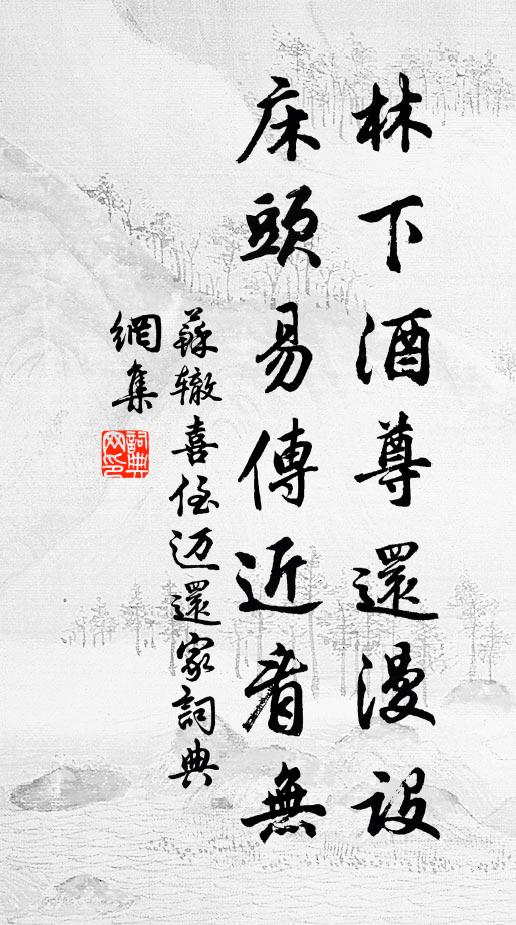 林下酒尊還漫設
床頭易傳近看無
蘇辙喜侄迈還家詞典
網集
詞典
网印